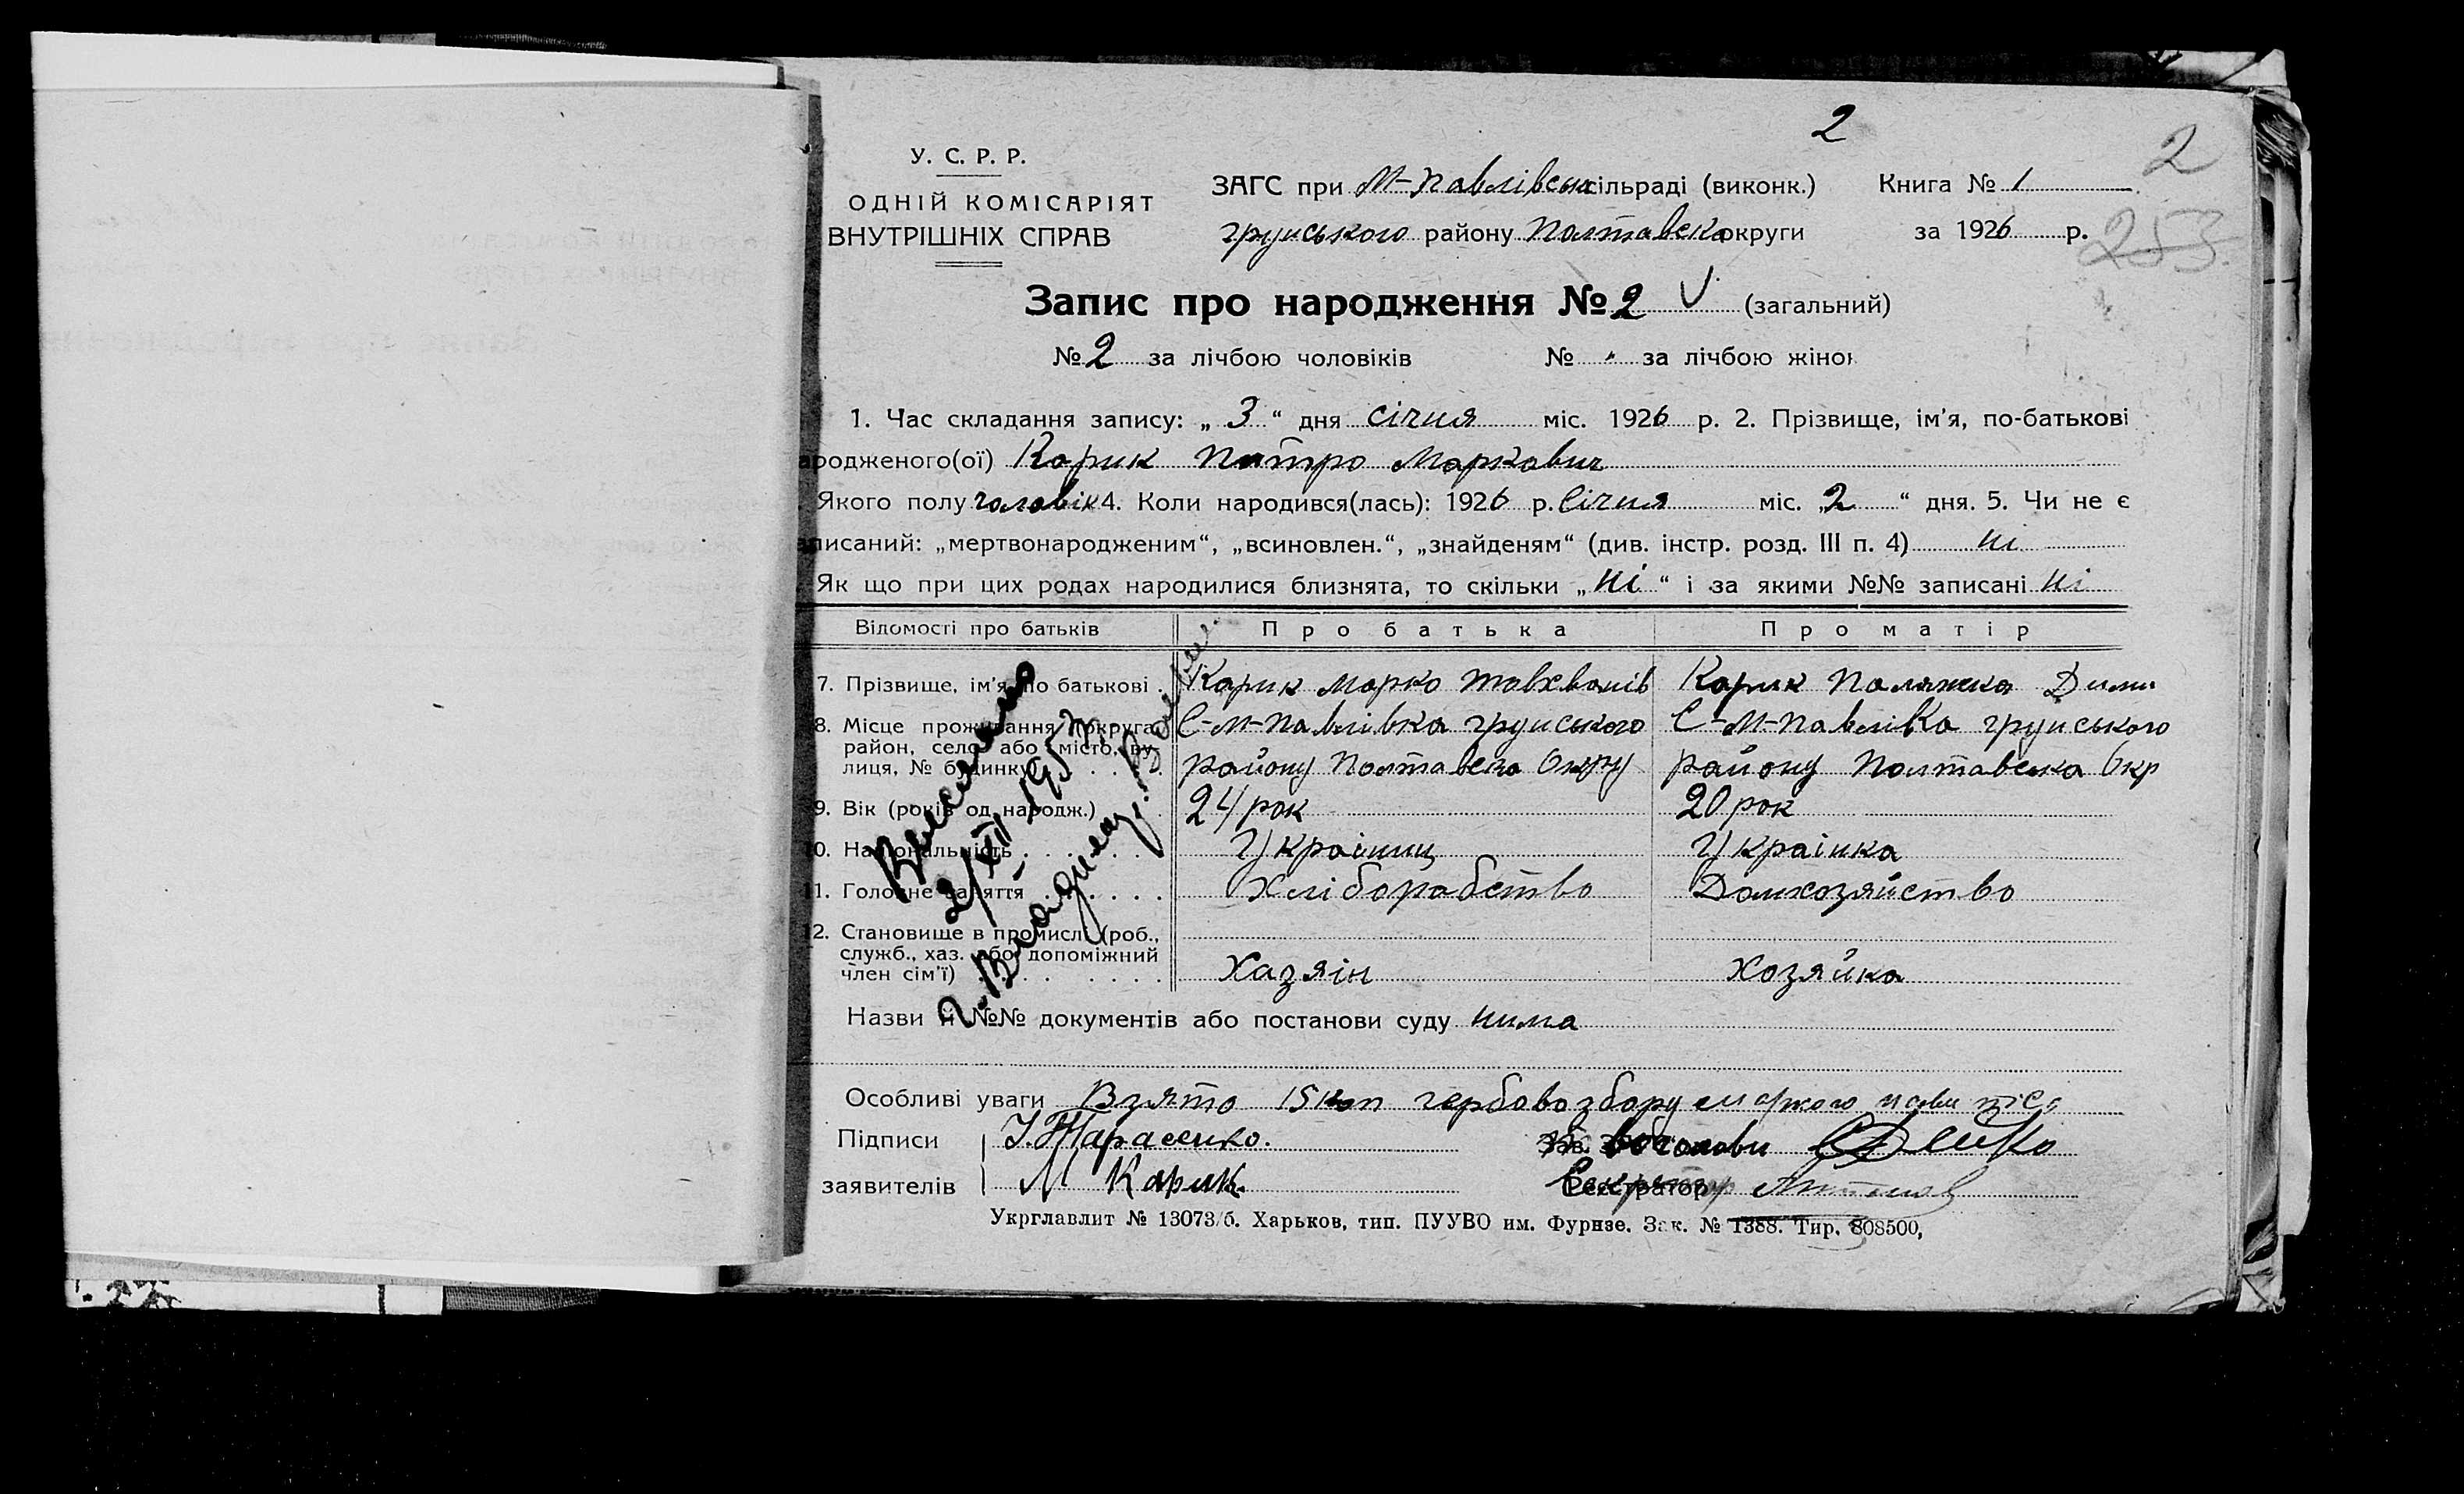 2
2
У. С. Р. Р.
ОДНІЙ КОМІСАРІЯТ
ВНУТРІШНІХ СПРАВ
ЗАГС при М-Павлівськ сільраді (виконк.) Книга № 1
груського району Полтавська округи за 1926 р.
253
Запис про народження № 2 V (загальний)
№ 2 за лічбою чоловіків № " за лічбою жінок
1. Час складання запису: „ 3 “ дня січня міс. 1926 р. 2. Прізвище, ім’я, по-батькові
ародженого(ої) Карик Питро Маркович
Якого полу чоловік 4. Коли народився(лась): 1926 р. Січня міс. „2 “ дня. 5. Чи не є
аписаний: „мертвонародженим“, „всиновлен.“, „знайденям“ (див. інстр. розд. III п. 4) ні
Як що при цих родах народилися близнята, то скільки „ ні “ і за якими №№ записані ні
Відомості про батьків Про батька Про матір
7. Прізвище, ім’я по батькові . Карик Марко Карик Палажка Дими
8. Місце проживання (округа, район, село або місто, вулиця, № будинку) С-М-Павлівка груського С-М-Павлівка груського
району Полтавська Окру району Полтавська Окр
9. Вік (років од народж.) 24 рок 20 рок
10. Національність Україниц Українка
11. Головне заняття Хліборобство Домхозяйство
12. Становище в промислі (роб., служб., хаз. або допоміжний член сім’ї) Хазяін Хозяйка
Назви й №№ документів або постанови суду нима
Особливі уваги Взято 15 коп гербовозбору
Підписи І. Тарасенко. голови
заявителів М Карик. Реєстратор
Укрглавлит № 13073/б. Харьков, тип. ПУУВО им. Фурнзе. Зак. № 1388. Тир. 808500,